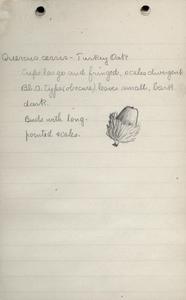 Quercus cerris - Turkey Oak
Cups large and fringed, scales divergent
Bl. O. type (obscure) leaves small, bark
dark.
Buds with long-
pointed scales.